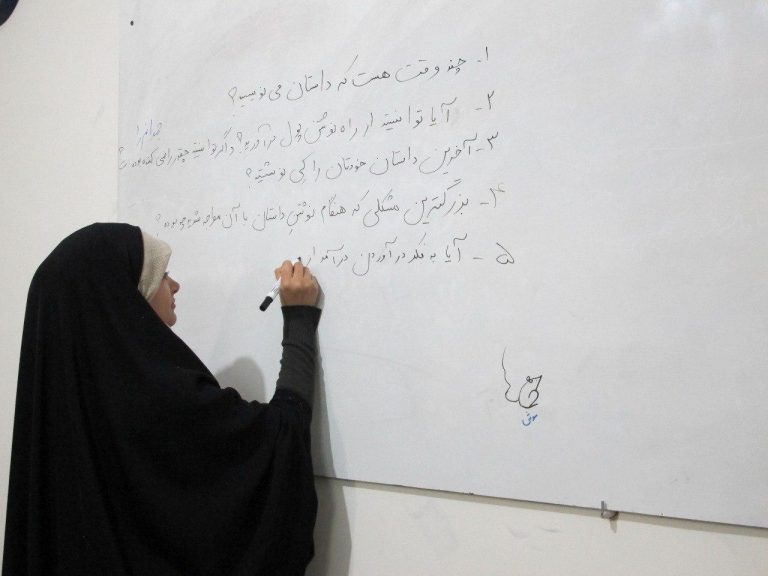 ۱- چند وقت هست که داستان می نویسید؟
۲- آیا توانستید از راه نوشتن پول در آورید؟ و اگر توانستید چقدر راضی کننده بوده
۳- آخرین داستان خودتان را کِی نوشتید؟
۴- بزرگترین مشکلی که هنگام نوشتنِ داستان با آن مواجه شدید می بوده؟
۵- آیا به فکر در آوردن درآمد از